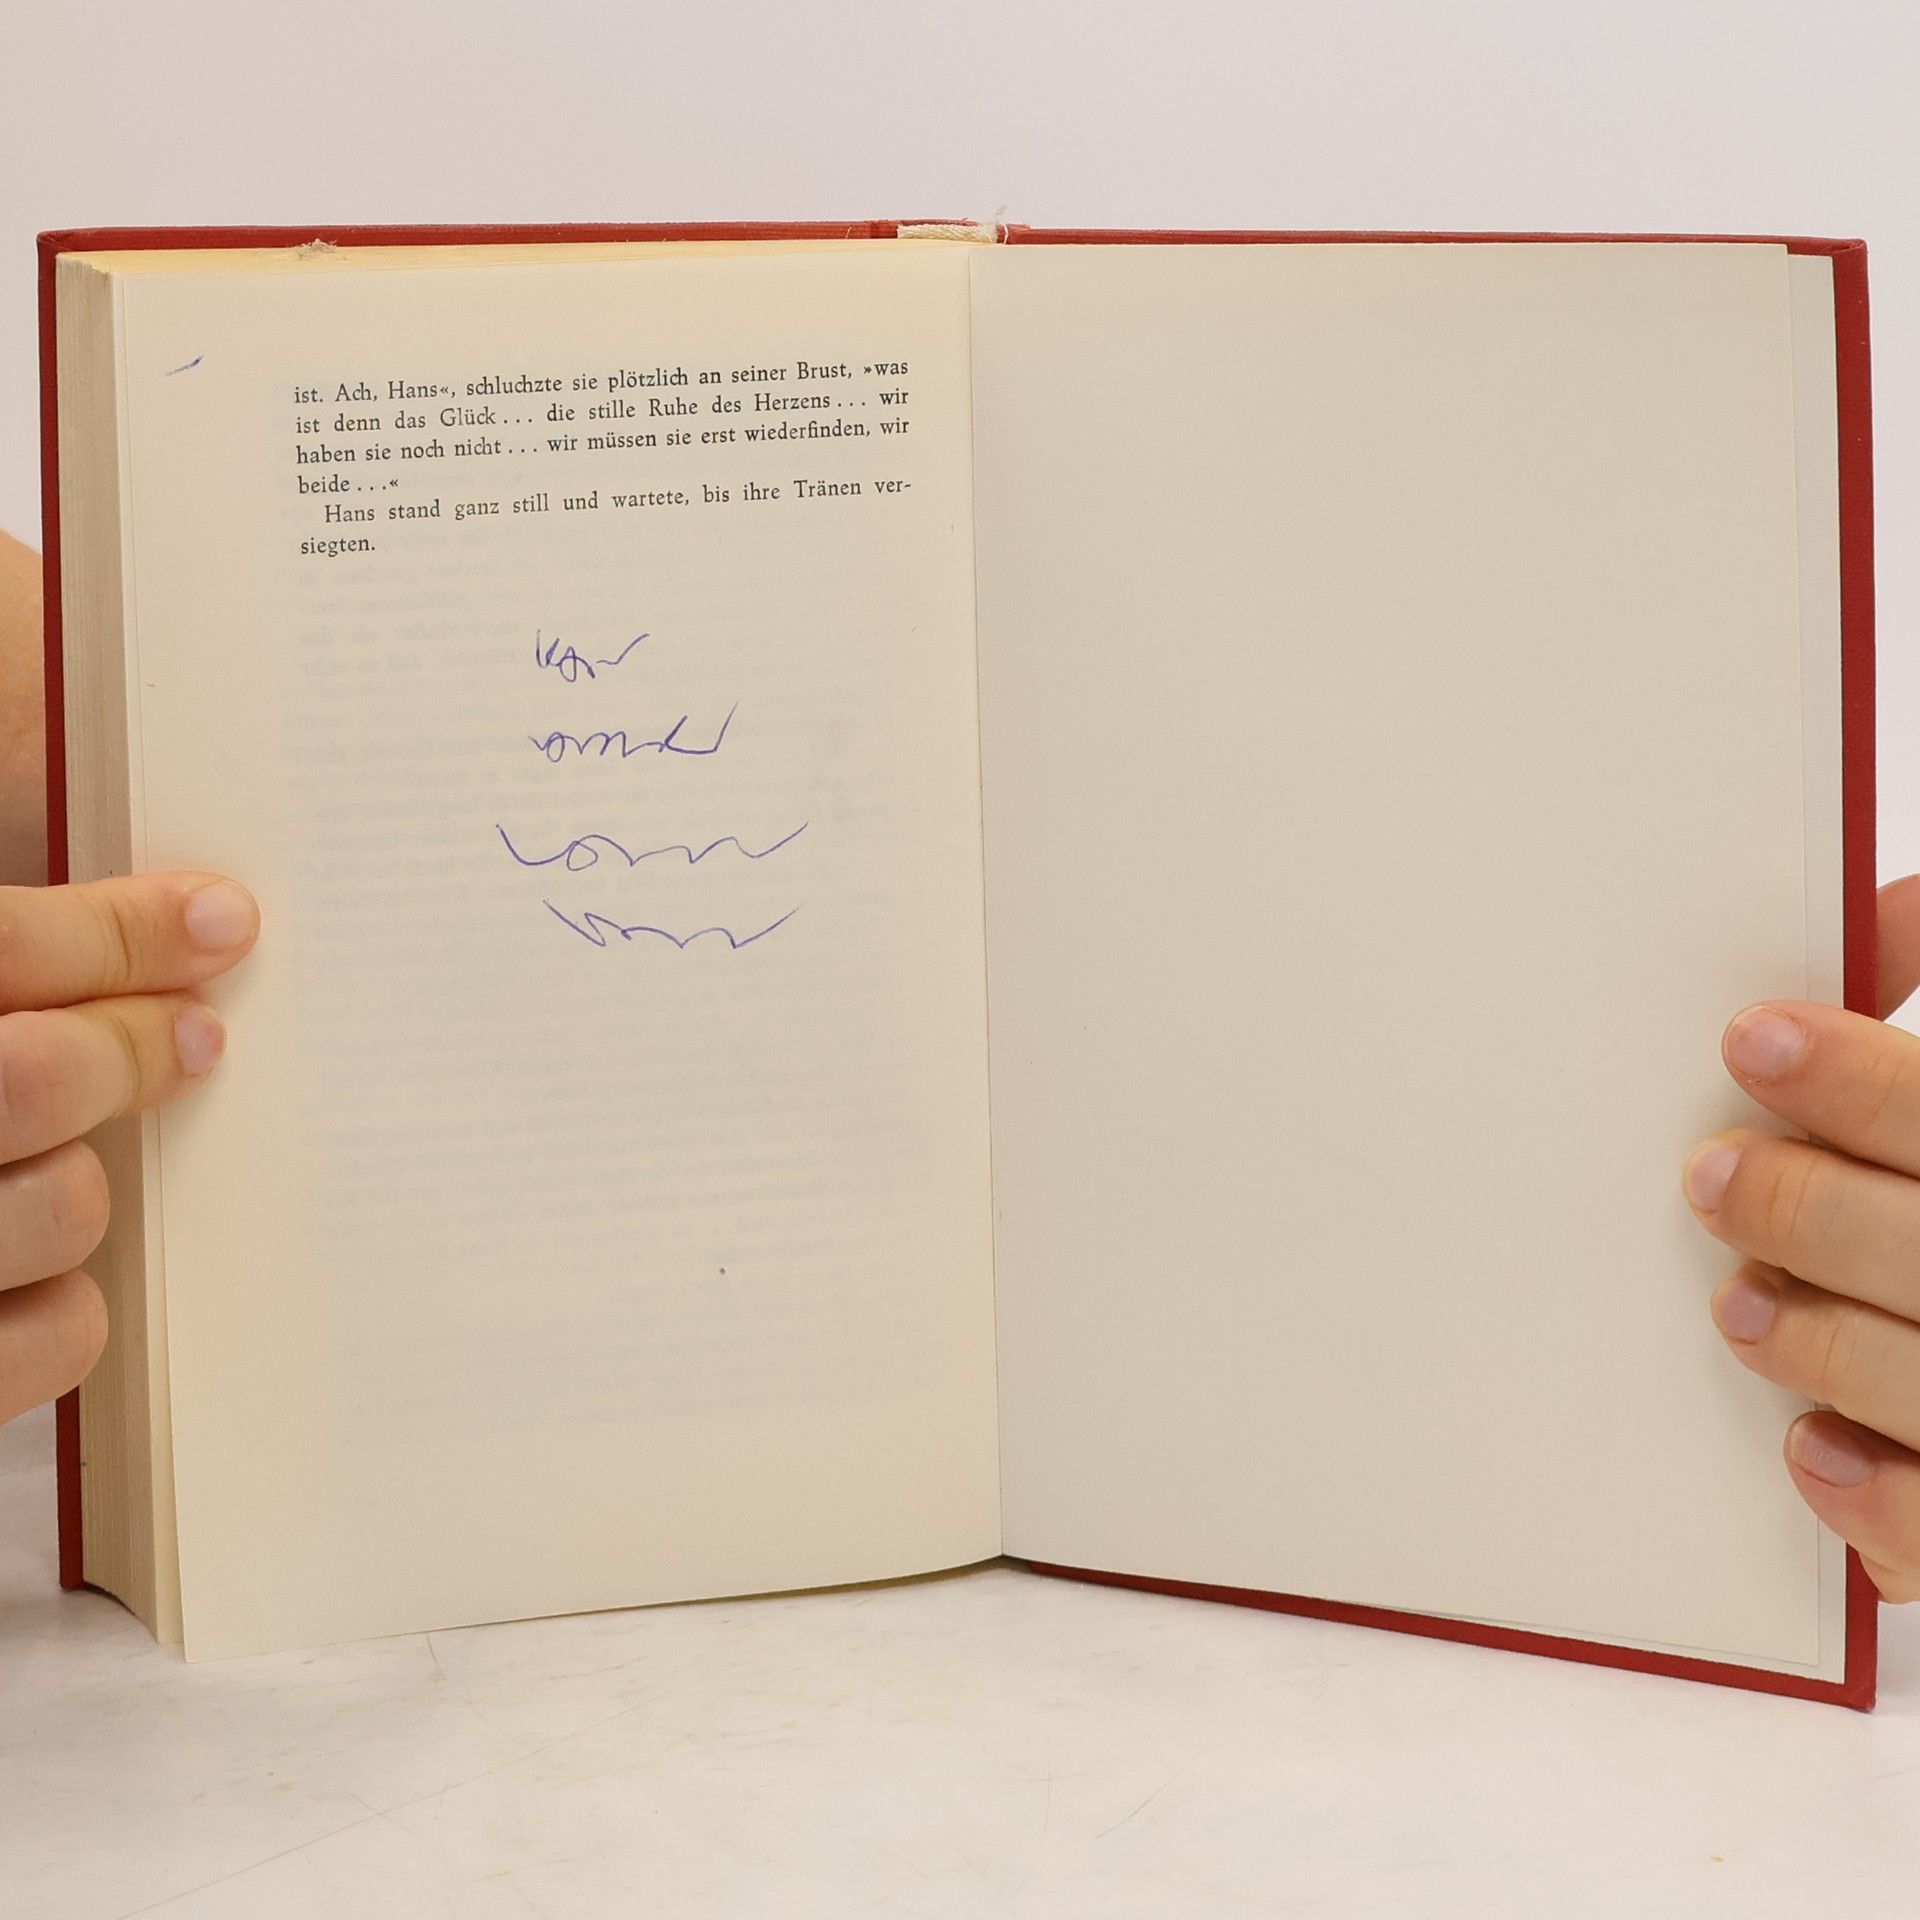 ist. Ach, Hans«, schluchzte sie plötzlich an seiner Brust, »was
ist denn das Glück... die stille Ruhe des Herzens... wir
haben sie noch nicht... wir müssen sie erst wiederfinden, wir
beide...«
Hans stand ganz still und wartete, bis ihre Tränen ver-
siegten.